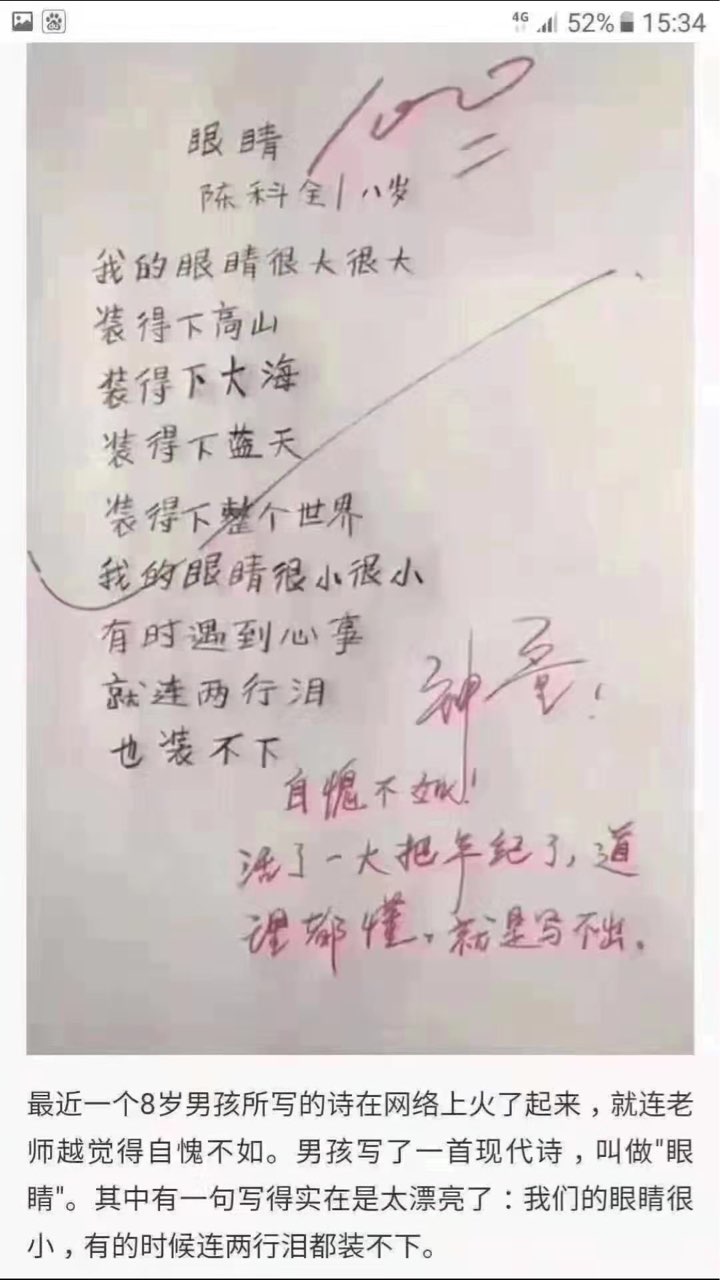 4G 52% 15:34
100
眼睛
陈科全/八岁
我的眼睛很大很大
装得下高山
装得下大海
装得下蓝天
装得下整个世界
我的眼睛很小很小
有时遇到心事
就连两行泪
也装不下
神童!
自愧不如!
活了一大把年纪了,道
理都懂。就是写不出。
最近一个8岁男孩所写的诗在网络上火了起来，就连老
师越觉得自愧不如。男孩写了一首现代诗，叫做"眼
睛"。其中有一句写得实在是太漂亮了：我们的眼睛很
小，有的时候连两行泪都装不下。